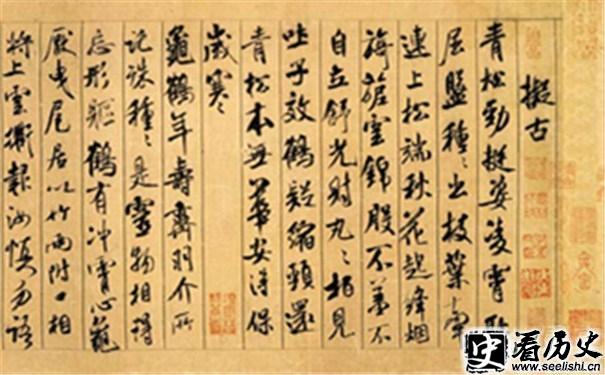 擬古
青松勁挺姿凌霄耻
屈盤種〻出枝葉牽
連上松端秋花起絳烟
旖旎雲錦殷不羞不
自立舒光射丸〻柏見
吐子效鶴疑縮頸還
青松本無華安得保
歲寒
龜鶴年壽齊羽介所
託殊種〻是靈物相得
忘形軀鶴有冲霄心龜
厭曳尾居以竹兩附口相
將上雲衢報汝慎勿語
史 看历史
www.seelishi.cn